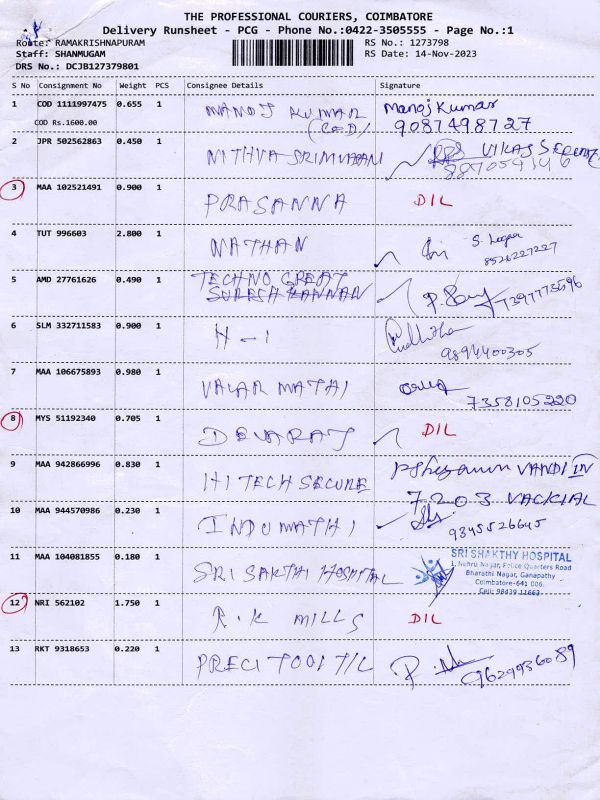 THE PROFESSIONAL COURIERS, COIMBATORE
Delivery Runsheet - PCG - Phone No.:0422-3505555 - Page No.:1
Route: RAMAKRISHNAPURAM RS No.: 1273798
Staff: SHANMUGAM RS Date: 14-Nov-2023
DRS No.: DCJB127379801
S No Consignment No Weight PCS Consignee Details Signature
1 COD 1111997475 0.655 1 MANOJ KUMAR Manoj Kumar
COD Rs.1600.00 (COD) 9087498727
2 JPR 502562863 0.450 1 NITHYA SRIMURGAN VIKAS
3 MAA 102521491 0.900 1 PRASANNA DIL
4 TUT 996603 2.800 1 NATHAN
8526227227
5 AMD 27761626 0.490 1 TECHNO GREAT
SURESH KANNAN 7397773596
6 SLM 332711583 0.900 1 H-1
9894400305
7 MAA 106675893 0.980 1 VALAR MATHI
7358105220
8 MYS 51192340 0.705 1 DEVARAJ DIL
9 MAA 942866996 0.830 1 HITECH SECURE VANDI IN
7203
10 MAA 944570986 0.230 1 INDUMATHI 9345526645
11 MAA 104081855 0.180 1 SRI SAKTHI HOSPITAL SRI SHAKTHY HOSPITAL
1, Nehru Nagar, Police Quarters Road
Bharathi Nagar, Ganapathy
Coimbatore-641 006.
Cell: 98439 11663
12 NRI 562102 1.750 1 R.K MILLS DIL
13 RKT 9318653 0.220 1 PRECI TOOL 9629936089